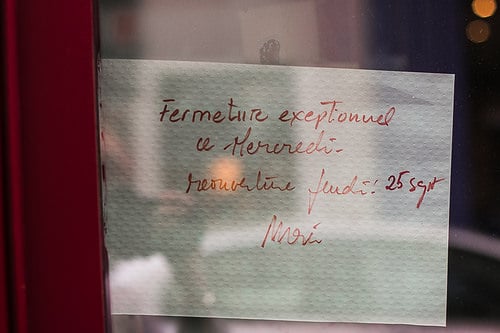 Fermeture exceptionnel
ce Mercredi-
réouverture jeudi: 25 sept
Merci